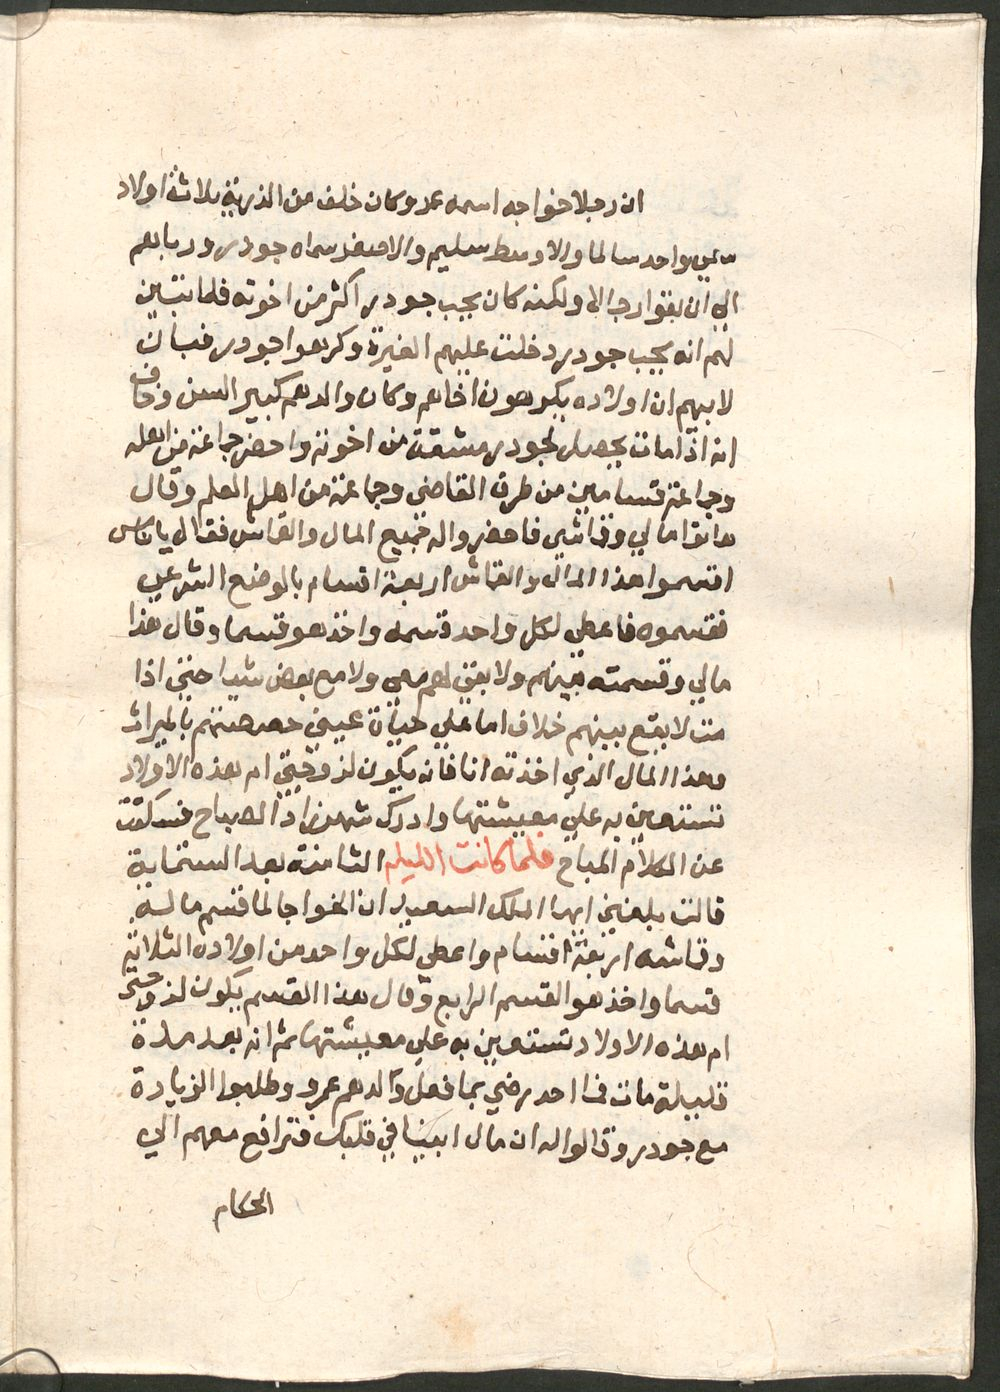 ان رجلا خواجه اسمه عمر وكان خلف من الذرية ثلاثة اولاد
سمي واحد سالما والاوسط سليم والاصغر سماه جودر ورباهم
الي ان بقوا رجالا ولكنه كان يحب جودر اكثر من اخوته فلما تبين
لهم انه يحب جودر دخلت عليهم الغيرة وكرهوا جودر فبان
لابيهم ان اولاده يكرهون اخاهم وكان والدهم كبير السن وخاف
انه اذا مات يحصل لجودر مشقة من اخوته واحضر جماعة من اهله
وجماعة قسامين من طرف القاضي وجماعة من اهل العلم وقال
هاتوا مالي وقماشي فاحضروا له جميع المال والقماش فقال يا ناس
اقسموا هذا المال والقماش اربعة اقسام بالوضع الشرعي
فقسموه فاعطي لكل واحد قسمه واخذ هو قسما وقال هذا
مالي وقسمته بينهم ولا بقي لهم معي ولا مع بعض شيا حتي اذا
مت لا يقع بينهم خلاف اما علي حياة عيني حصصتهم بالميراث
وهذا المال الذي اخذته انا فانه يكون لزوجتي ام هذه الاولاد
تستعين به علي معيشتها وادرك شهرزاد الصباح فسكتت
عن الكلام المباح فلما كانت الليلة الثامنة بعد الستماية
قالت بلغني ايها الملك السعيد ان الخواجا لما قسم ماله
وقماشه اربعة اقسام واعطي لكل واحد من اولاده الثلاثة
قسما واخذ هو القسم الرابع وقال هذا القسم يكون لزوجتي
ام هذه الاولاد تستعين به علي معيشتها ثم انه بعد مدة
قليلة مات فما احد رضي بما فعل والدهم عمر و وطلبوا الزيادة
مع جودر وقالوا له ان مال ابينا في قلبك فترافع معهم الي
الحكام